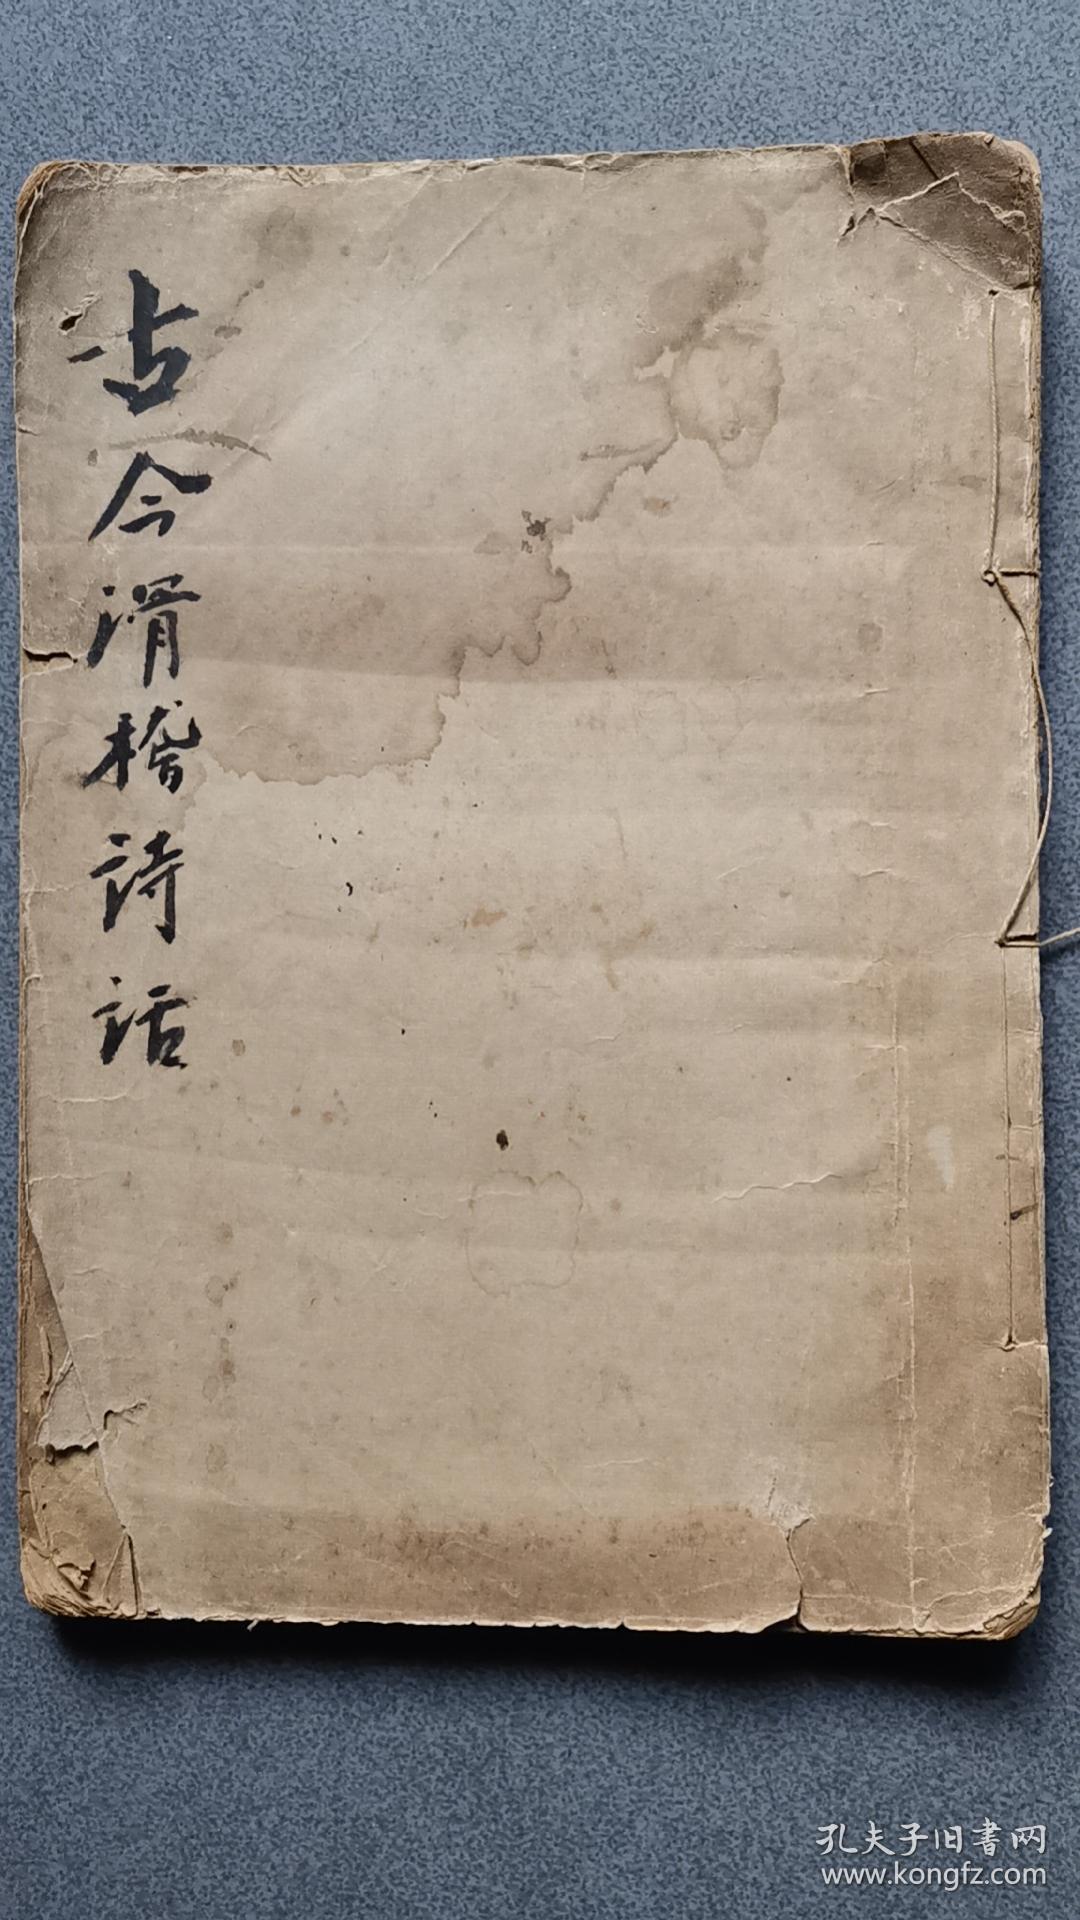 古今滑稽诗话
孔夫子旧书网
www.kongfz.com